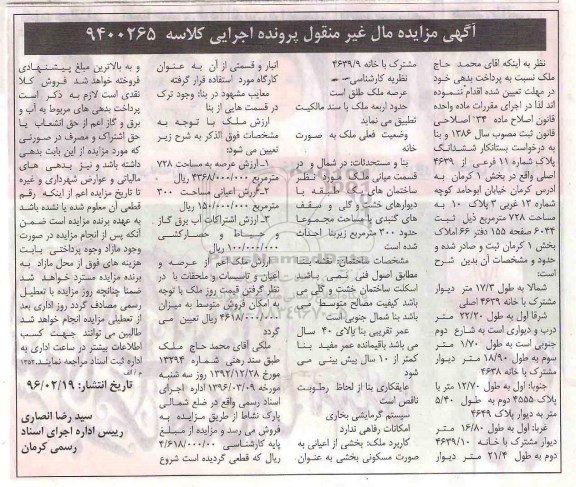 آگهی مزایده مال غیر منقول پرونده اجرایی کلاسه ۹۴۰۰۲۶۵
نظر به اینکه آقای محمد حاج
ملک نسبت به پرداخت بدهی خود
در مهلت تعیین شده اقدام ننموده
اند لذا در اجرای مقررات ماده واحده
قانون اصلاح ماده ۳۴ اصلاحی
قانون ثبت مصوب سال ۱۳۸۶ و بنا
به درخواست بستانکار ششدانگ
پلاک شماره ۱۱ فرعی از ۴۶۳۹
اصلی واقع در بخش ۱ کرمان به
آدرس کرمان خیابان ابوحامد کوچه
شماره ۱۳ غربی ۳ پلاک ۱۰ به
مساحت ۷۲۸ مترمربع ذیل ثبت
۶۰۴۴ صفحه ۱۵۵ دفتر ۶۶ املاک
بخش ۱ کرمان ثبت و صادر شده و
حدود و مشخصات آن بدین شرح
است:
شمالا به طول ۱۷/۳ متر دیوار
مشترک با خانه ۴۶۳۹ اصلی
شرقا اول به طول ۲۲/۲۰ متر
درب و دیواری است به شارع دوم
جنوبی است به طول ۱/۷۰ متر
سوم به طول ۱۸/۹۰ متر دیوار
مشترک با خانه ۴۶۳۸
جنوبا: اول به طول ۱۲/۷۰ متر با
پلاک ۴۵۵۵ دوم به طول ۵/۴۰
متر به دیوار پلاک ۴۶۴۹
غربا: اول به طول ۱۶/۸۰ متر
دیوار مشترک با خانه ۴۶۳۹/۱۰
دوم به طول ۲۱/۴ متر دیوار
مشترک با خانه ۴۶۳۹/۹
نظریه کارشناسی
عرصه ملک طلق است
حدود اربعه ملک با سند مالکیت
تطبیق می نماید
وضعیت فعلی ملک به صورت
خانه
بنا و مستحدثات: در شمال و در
قسمت میانی ملک مورد نظر
ساختمان های یک طبقه با
دیوارهای خشت و گلی و سقف
های گنبدی با مساحت مجموعا
حدود ۳۰۰ مترمربع زیربنا احداث
شده است
مشخصات ساختمان: سقف
مطابق اصول فنی نمی باشد
اسکلت ساختمان خشت و گلی می
باشد کیفیت مصالح متوسط می
باشد بنا شمال جنوبی است
عمر تقریبی بنا بالای ۴۰ سال
می باشد باقیمانده عمر مفید بنا
کمتر از ۱۰ سال پیش بینی می
شود
عایقکاری بنا از لحاظ رطوبت
ناقص است
سیستم گرمایشی بخاری
امکانات رفاهی ندارد
کاربرد ملک: بخشی از اعیانی به
صورت مسکونی بخشی به عنوان
انبار و قسمتی از آن به عنوان
کارگاه مورد استفاده قرار گرفته
معایب مشهود در بنا: وجود ترک
در قسمت هایی از بنا
ارزش ملک با توجه به
مشخصات فوق الذکر به شرح زیر
تعیین می شود:
۱- ارزش عرصه به مساحت ۷۲۸
مترمربع ۴۳۶۸/۰۰۰/۰۰۰ ریال
۲- ارزش اعیانی مساحت ۳۰۰
مترمربع ۱۵۰/۰۰۰/۰۰۰ ریال
۳- ارزش اشتراکات آب برق گاز
و حیاط و حصارکشی
۱۰۰/۰۰۰/۰۰۰ ریال
ارزش ملک اعم از عرصه و
اعیان و تاسیسات و ملحقات با در
نظر گرفتن قیمت روز ملک با توجه
به امکان فروش متوسط به میزان
۴۶۱۸/۰۰۰/۰۰۰ ریال تعیین می
گردد
ملکی آقای محمد حاج ملک
طبق سند رهنی شماره ۱۳۲۹۴
مورخ ۱۳۹۲/۱۲/۲۸ روز سه شنبه
مورخه ۱۳۹۶/۰۳/۰۹ اداره اجرای
اسناد رسمی واقع در ضلع شمالی
پارک نشاط از طریق مزایده به
فروش می رسد و مزایده از مبلغ
پایه کارشناسی ۴/۶۱۸/۰۰۰/۰۰۰
ریال که قطعی گردیده است شروع
و به بالاترین مبلغ پیشنهادی
فروخته خواهد شد فروش کلا
نقدی است لازم به ذکر است
پرداخت بدهی های مربوط به آب و
برق و گاز اعم از حق انشعاب یا
حق اشتراک و مصرف در صورتی
که مورد مزایده از این بابت بدهی
داشته باشد و نیز بدهی های
مالیاتی و عوارض شهرداری و غیره
تا تاریخ مزایده اعم از اینکه رقم
قطعی آن معلوم شده یا نشده باشد
به عهده برنده مزایده است ضمن
آنکه پس از انجام مزایده در صورت
وجود مازاد وجوه پرداختی بابت
هزینه های فوق از محل مازاد به
برنده مزایده مسترد خواهد شد
ضمنا چنانچه روز مزایده با تعطیل
رسمی مصادف گردد روز اداری بعد
از تعطیلی مزایده انجام خواهد شد
طالبین می توانند جهت کسب
اطلاعات بیشتر در ساعت اداری به
اداره ثبت اسناد مراجعه نمایند.
تاریخ انتشار: ۹۶/۰۲/۱۹
سید رضا انصاری
رییس اداره اجرای اسناد
رسمی کرمان